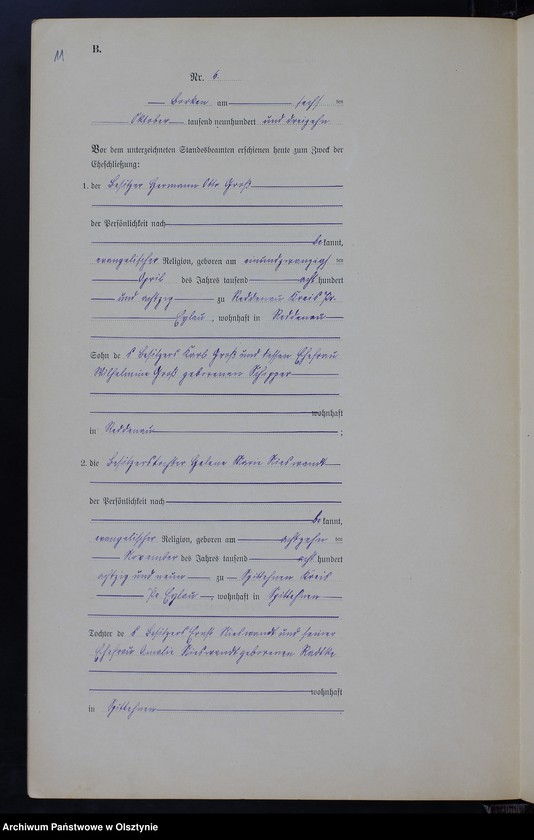 11
B.
Nr. 6.
Borken am sechs =
ten Oktober tausend neunhundert und dreizehn
Vor dem unterzeichneten Standesbeamten erschienen heute zum Zweck der
Eheschließung:
1. der Besitzer Hermann Otto Groß
der Persönlichkeit nach
be kannt,
evangelischer Religion, geboren am einundzwanzigs =
April des Jahres tausend acht hundert
und achtzig zu Reddenau Kreis Pr.
Eylau, wohnhaft in Reddenau
Sohn de s Besitzers Karl Groß und dessen Ehefrau
Wilhelmine Groß geborenen Schipper
wohnhaft
in Reddenau ;
2. die Besitzerstochter Helene Marie Kieswandt
der Persönlichkeit nach
be kannt,
evangelischer Religion, geboren am achtzehn =
November des Jahres tausend acht hundert
achtzig und neun zu Spittehnen Kreis
Pr Eylau, wohnhaft in Spittehnen
Tochter de s Besitzers Ernst Kieswandt und seiner
Ehefrau Amalie Kieswandt geborenen Radtke
wohnhaft
in Spittehnen
Archiwum Państwowe w Olsztynie